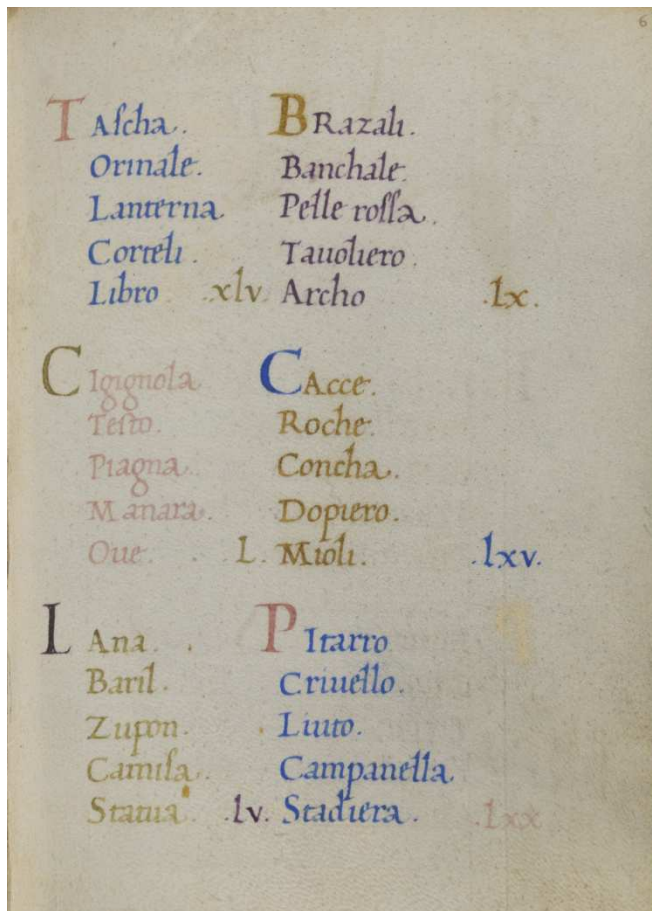 6
TAſcha.
Orinale.
Lanterna.
Corteli.
Libro .xlv.
CIgignola
Teſto.
Piagna.
Manara.
Oue. .L.
LAna.
Baril.
Zupon.
Camiſa.
Statua .lv.
BRazali.
Banchale.
Pelle roſſa.
Tauoliero.
Archo .lx.
CAcce.
Roche.
Concha.
Dopiero.
Mioli. .lxv.
PItarro
Criuello.
Liuto.
Campanella.
Stadiera. .lxx